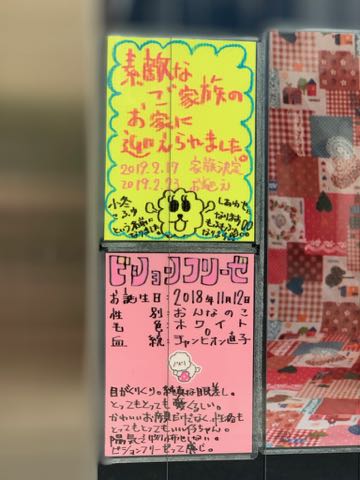 素敵な
ご家族の
お家に
迎えられました。
2019.2.19 家族決定
2019.2.23 お迎え
小冬
こふゆ
という名前に
なりました
しあわせに
ビションフリーゼ
お誕生日：2018年11月12日
性別：おんなのこ
毛色：ホワイト
血統：チャンピオン直子
目がクリクリの純真な眼差し。
とってもとっても愛くるしい。
かわいいお顔だけでなく、性格も
とってもとってもいい仔ちゃん。
陽気で物怖じしない。
ビションフリーゼって感じ。